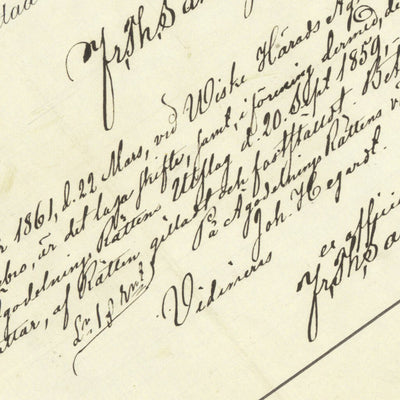 Fr. Th. Sa
r 1861, d. 22 Mars, vid Wiske Härads Äg
bro, är det laga skifte, samt, i förening dermed, de
godelning Rättens Utslag d. 20. Sept 1859,
ttar, af Rätten gilladt och fastställdt. Bet
På Ägodelning Rättens v
Joh. Hegardt.
Vidimeras
ex officio
Fr. Th. Sa